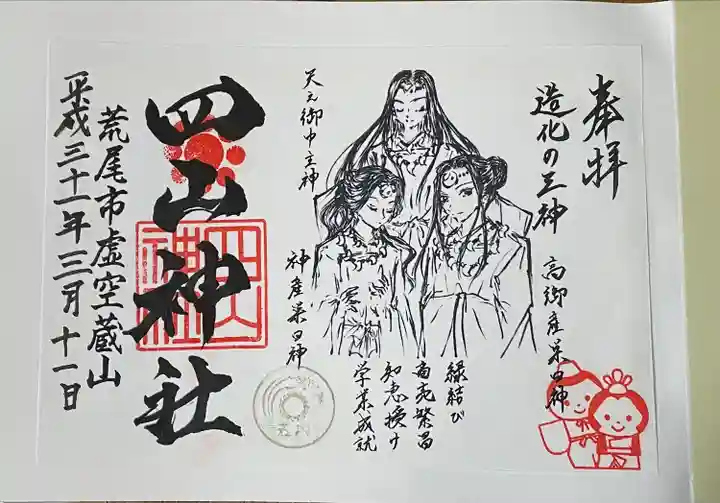 奉拝
造化の三神
高御産巣日神
天之御中主神
神産巣日神
縁結び
商売繁昌
知恵授け
学業成就
四山神社
四山神社
荒尾市虚空蔵山
平成三十一年三月十一日